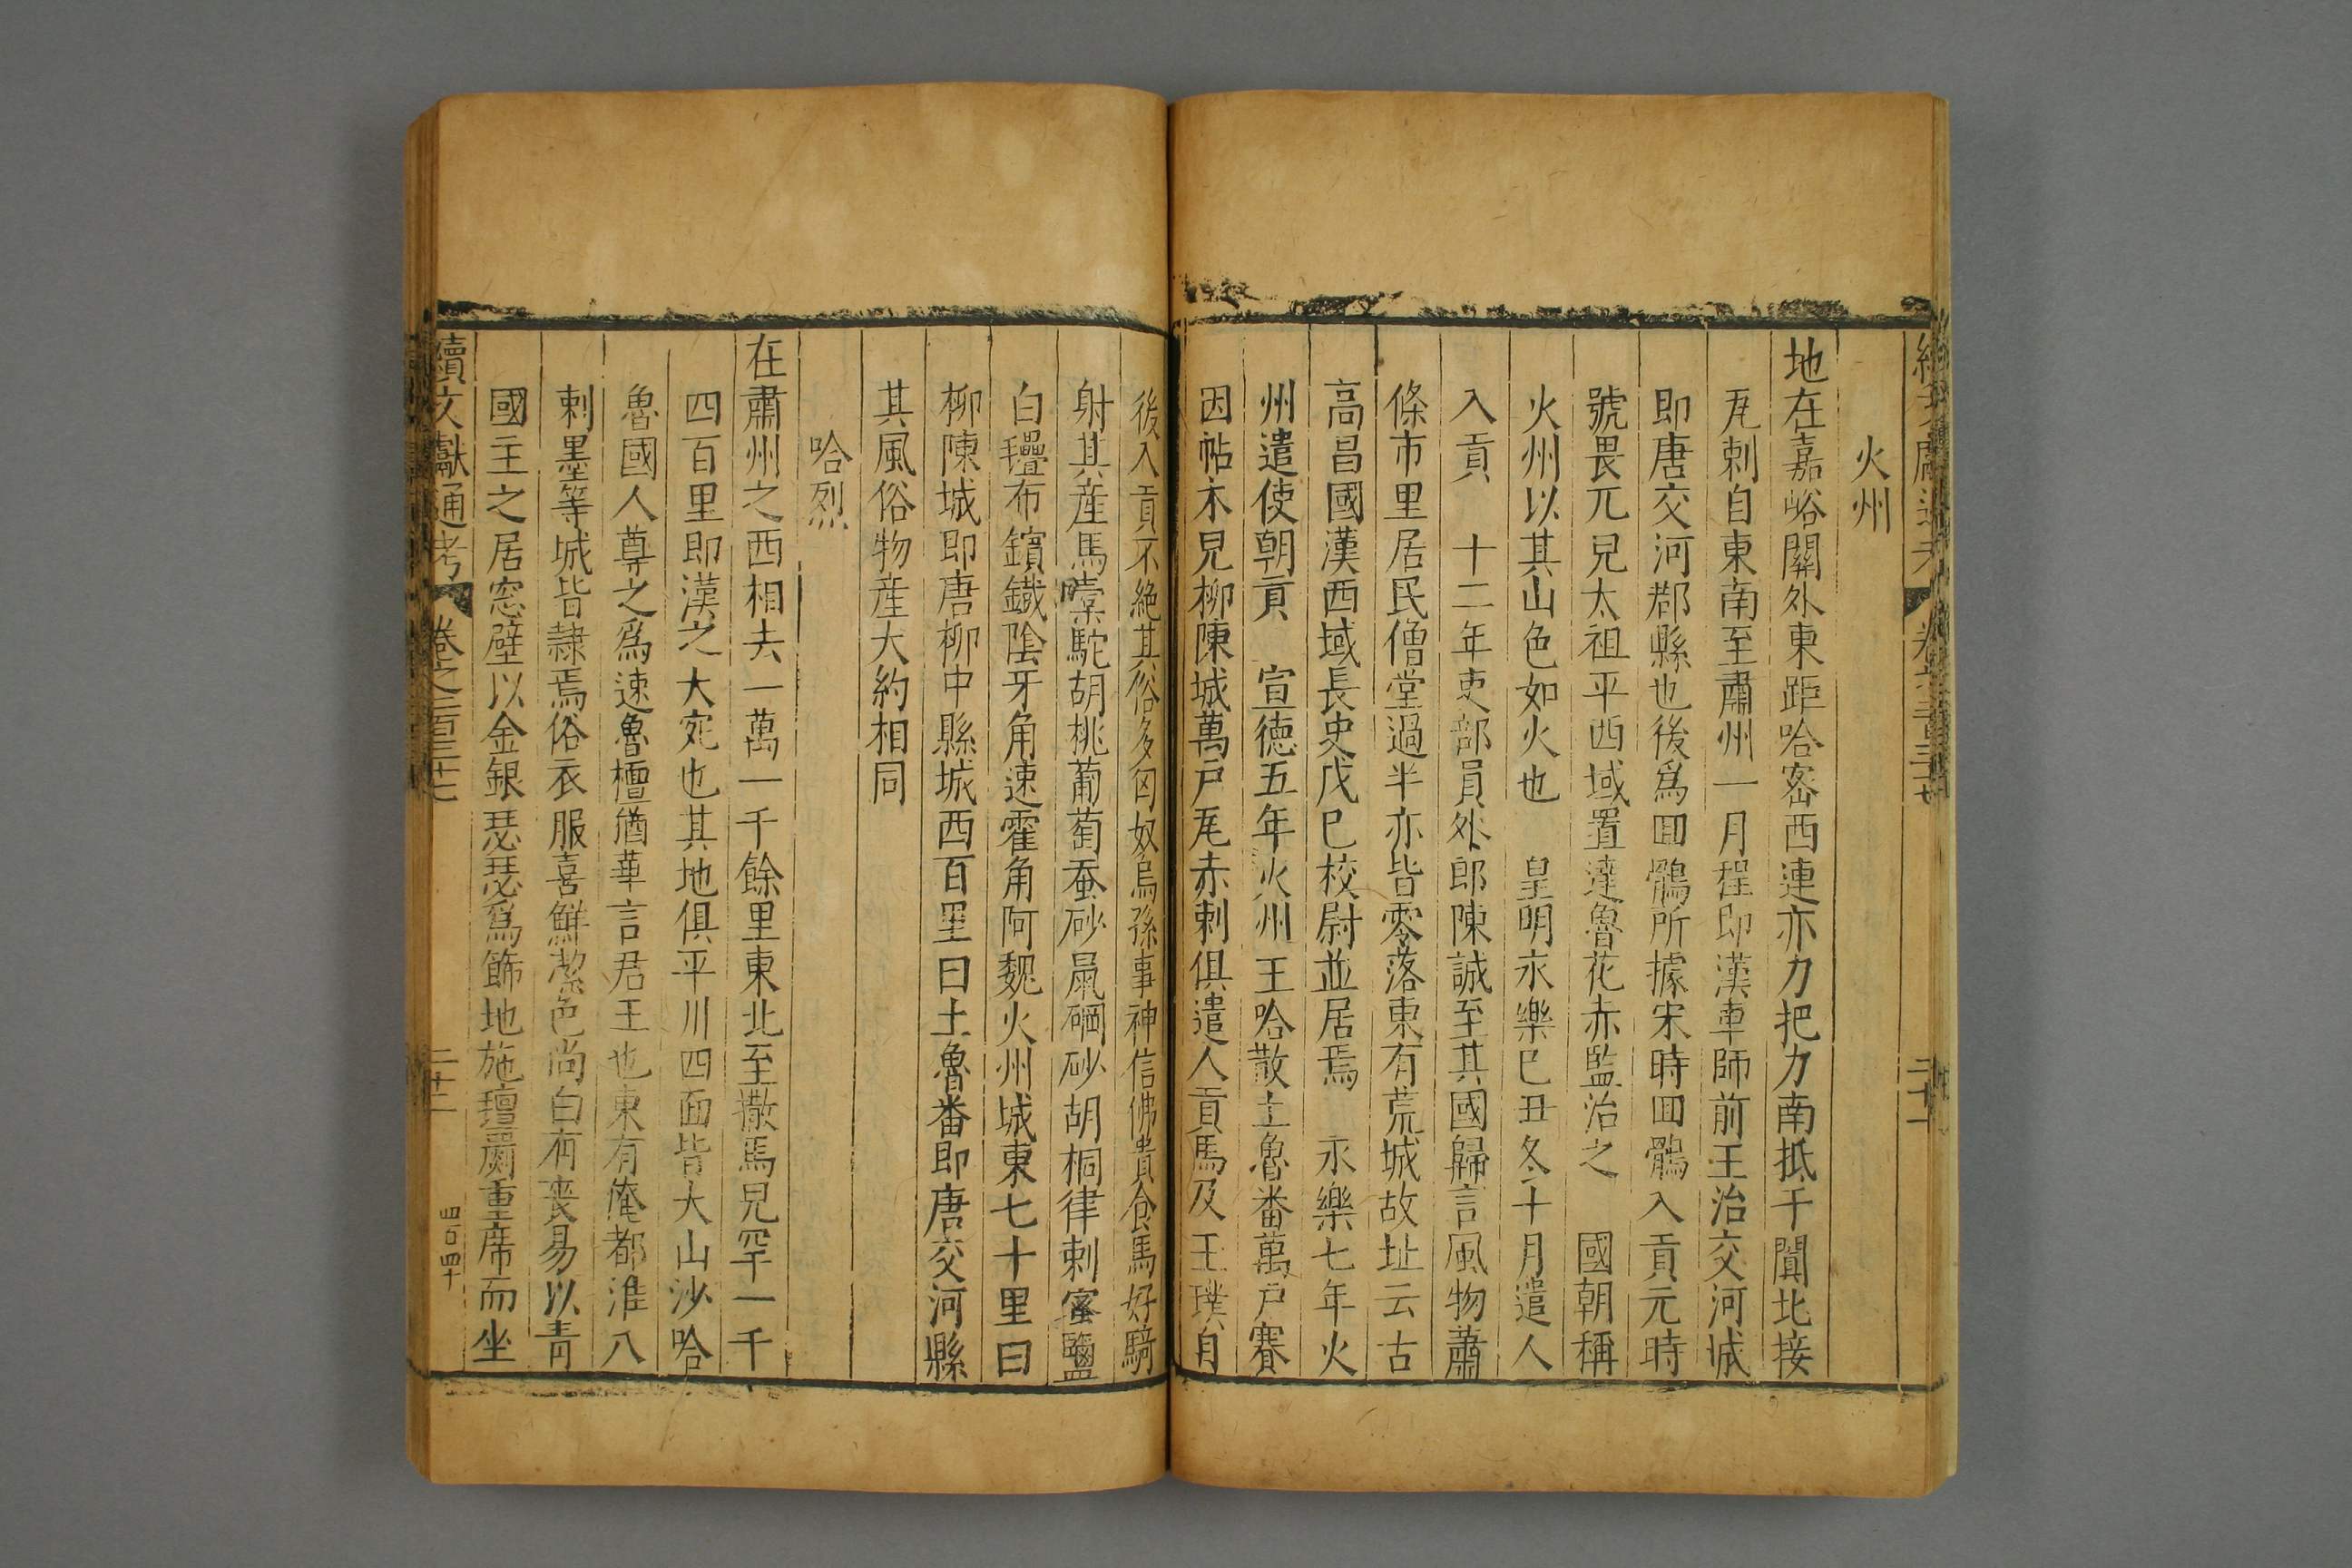 火州
地在嘉峪關外東距哈密西連亦力把力南抵于闐北接
瓦剌自東南至肅州一月程即漢車師前王治交河城
即唐交河郡縣也後爲回鶻所據宋時回鶻入貢元時
號畏兀兒太祖平西域置達魯花赤監治之　國朝稱
火州以其山色如火也　皇明永樂巳丑冬十月遣人
入貢　十二年吏部員外郎陳誠至其國歸言風物蕭
條市里居民僧堂過半亦皆零落東有荒城故址云古
高昌國漢西域長史戊巳校尉並居焉　永樂七年火
州遣使朝貢　宣德五年火州王哈散土魯番萬戶賽
因帖木兒柳陳城萬戶瓦赤剌俱遣人貢馬及玉璞自
後入貢不絶其俗多匈奴烏孫事神信佛貴食馬好騎
射其産馬槖駝胡桃葡萄蚕砂鼠硇砂胡桐律剌蜜鹽
白㲲布鑌鐵陰牙角速霍角阿魏火州城東七十里曰
柳陳城即唐柳中縣城西百里曰土魯番即唐交河縣
其風俗物産大約相同
哈烈
在肅州之西相去一萬一千餘里東北至撒馬兒罕一千
四百里即漢之大宛也其地俱平川四面皆大山沙哈
魯國人尊之爲速魯檀猶華言君王也東有俺都淮八
剌墨等城皆隷焉俗衣服喜鮮潔色尚白有喪易以青
國王之居窓壁以金銀瑟瑟爲飾地施氊罽重席而坐
續文獻通考　卷之二百三十七　二十二　四百四十